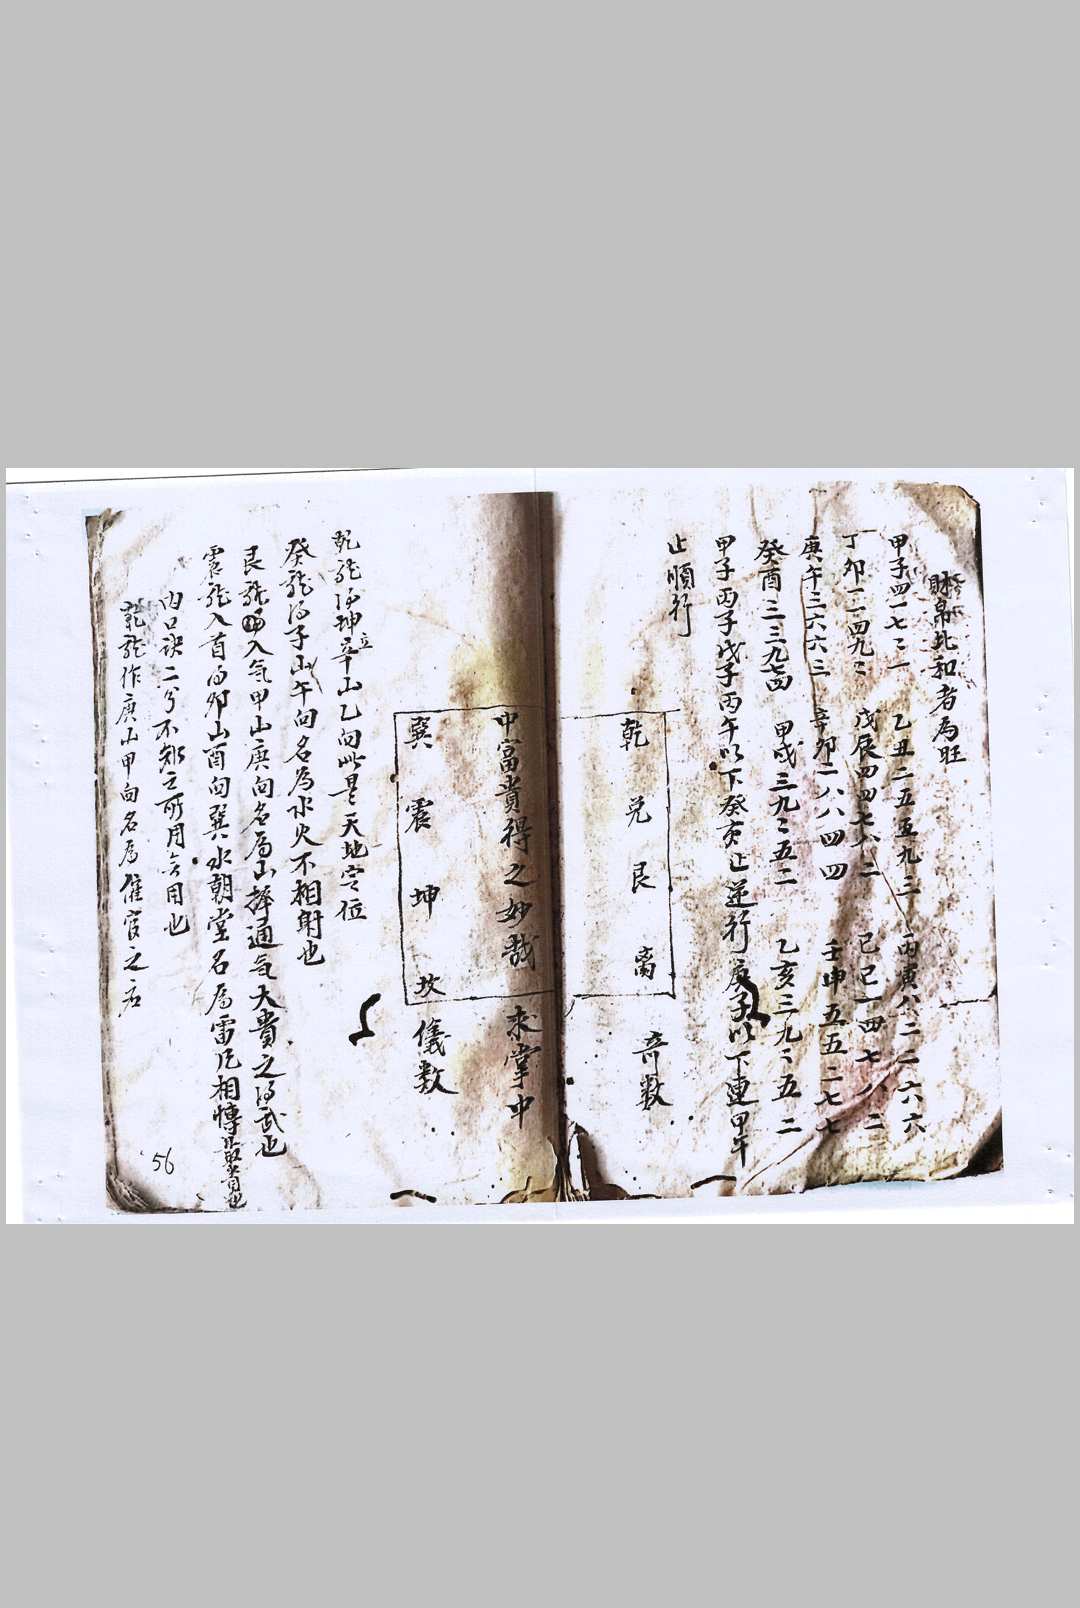 財帛比和者為旺
甲子四一七三一 乙丑二五五九三 丙寅八二二六六
丁卯一一四九三 戊辰四四七八二 己巳一四七八二
庚午三六六三 辛卯一八八四四 壬申五五二七七
癸酉三三九七四 甲戌三九三五二 乙亥三九三五二
甲子丙子戊子丙午以下癸亥止逆行庚子以下連甲午
止順行
乾 兌 艮 离 奇数
中富貴得之妙哉 来掌中
巽 震 坤 坎 儀数
乾龍得坤立辛山乙向此是天地定位
癸龍得子山午向名為水火不相射也
艮龍入氣甲山庚向名為山擇通氣大貴之得武也
震龍入首向卯山酉向巽水朝堂名為雷凡相愽最貴也
內口訣二兮不知之所用言用也
乾龍作庚山甲向名為催官之右
56